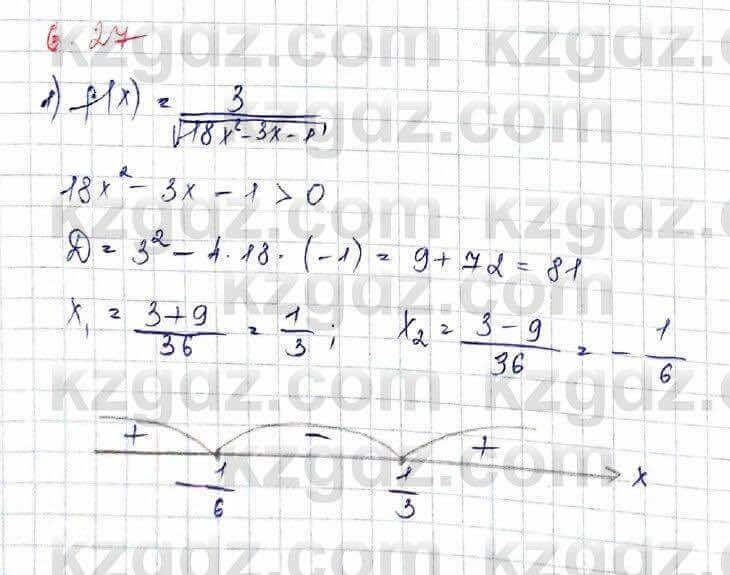 6.27
1) f(x) = 3/√(18x² - 3x - 1)
18x² - 3x - 1 > 0
D = 3² - 4·18·(-1) = 9 + 72 = 81
x₁ = (3+9)/36 = 1/3; x₂ = (3-9)/36 = -1/6
+ - +
-1/6 1/3 x
kzgdz.com